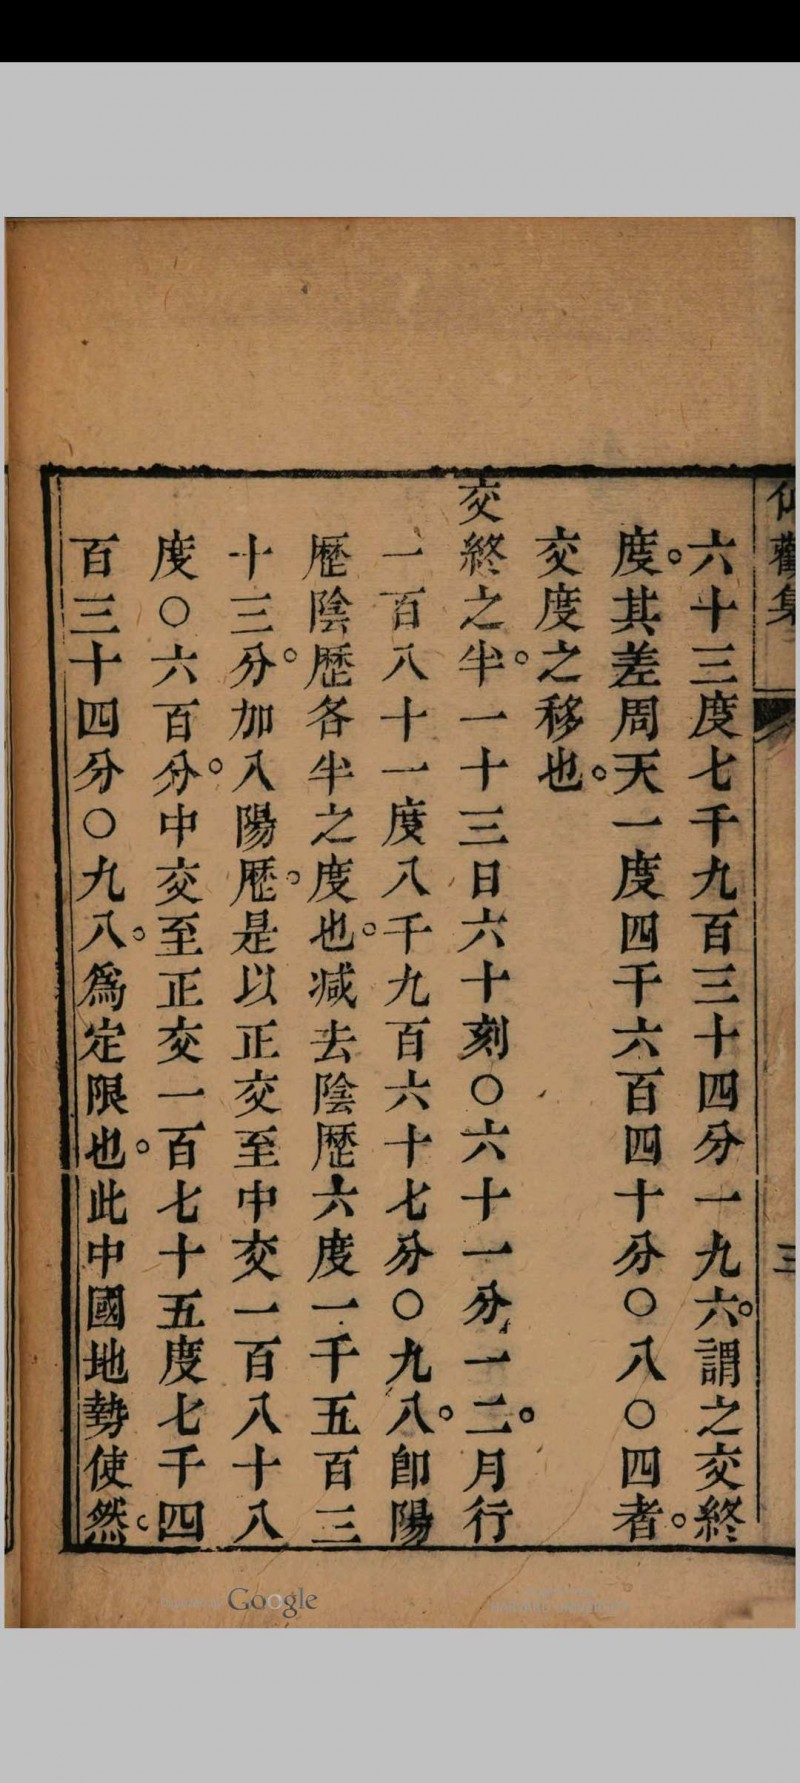 觀集
三
六十三度七千九百三十四分一九六。謂之交終
度。其差周天一度四千六百四十分〇八〇四者。
交度之移也。
交終之半。一十三日六十刻〇六十一分一二。月行
一百八十一度八千九百六十七分〇九八。卽陽
歷陰歷各半之度也。減去陰歷六度一千五百三
十三分。加入陽歷。是以正交至中交一百八十八
度〇六百分。中交至正交一百七十五度七千四
百三十四分〇九八。爲定限也。此中國地勢使然。
Google